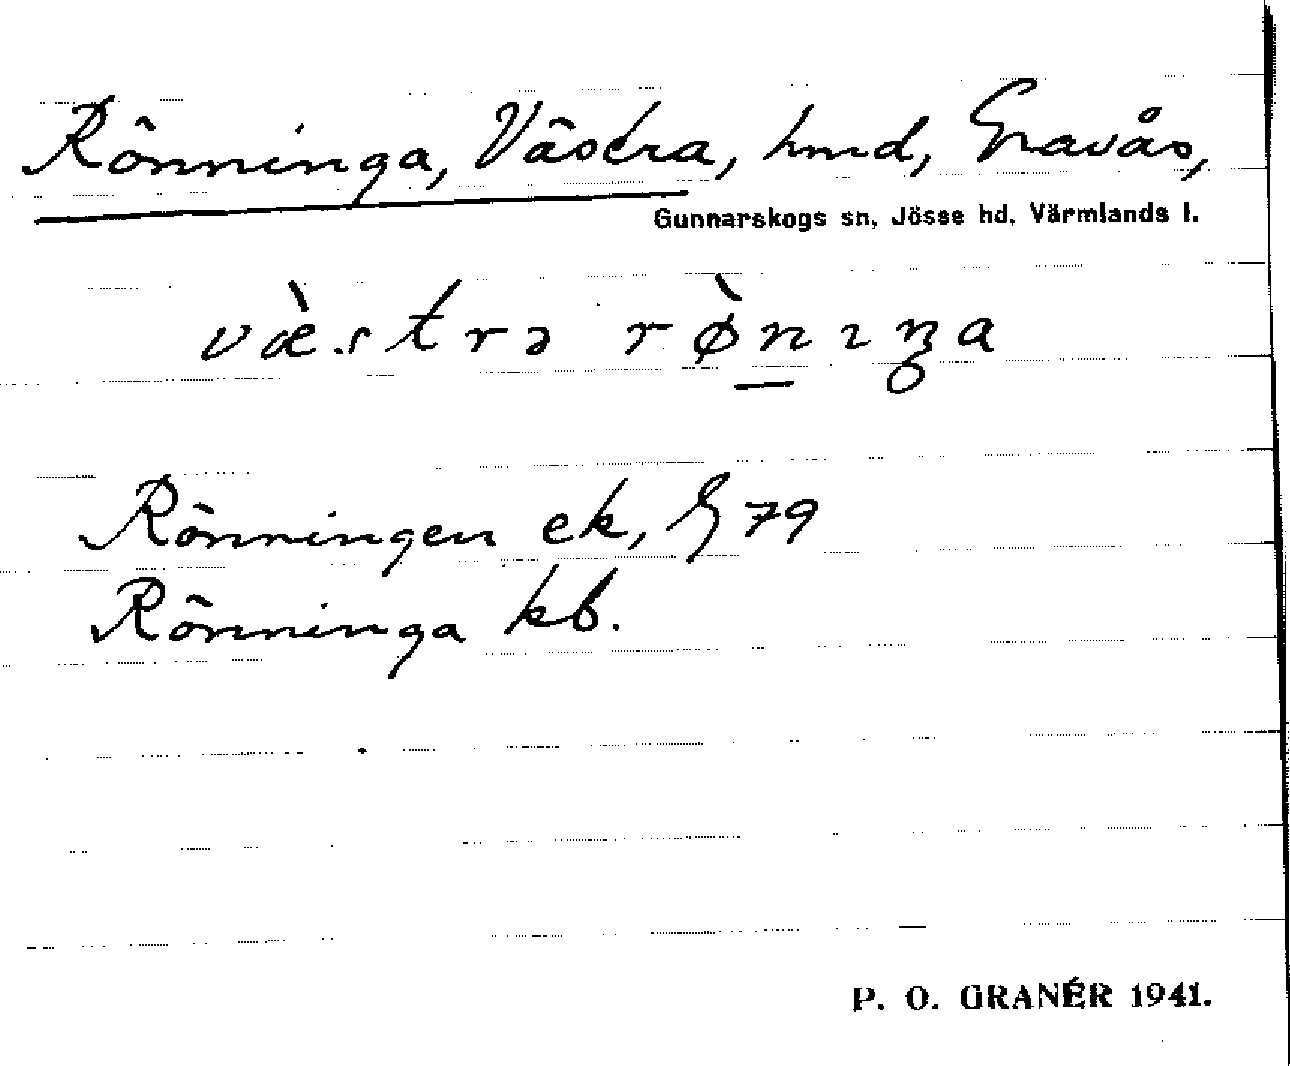 Rönninga, Västra, hmd, Gravås,
Gunnarskogs sn, Jösse hd, Värmlands l.
væ̀strə rø̀n̲ıŋa
Rönningen ek, G 79
Rönninga kb.
P. O. GRANÉR 1941.